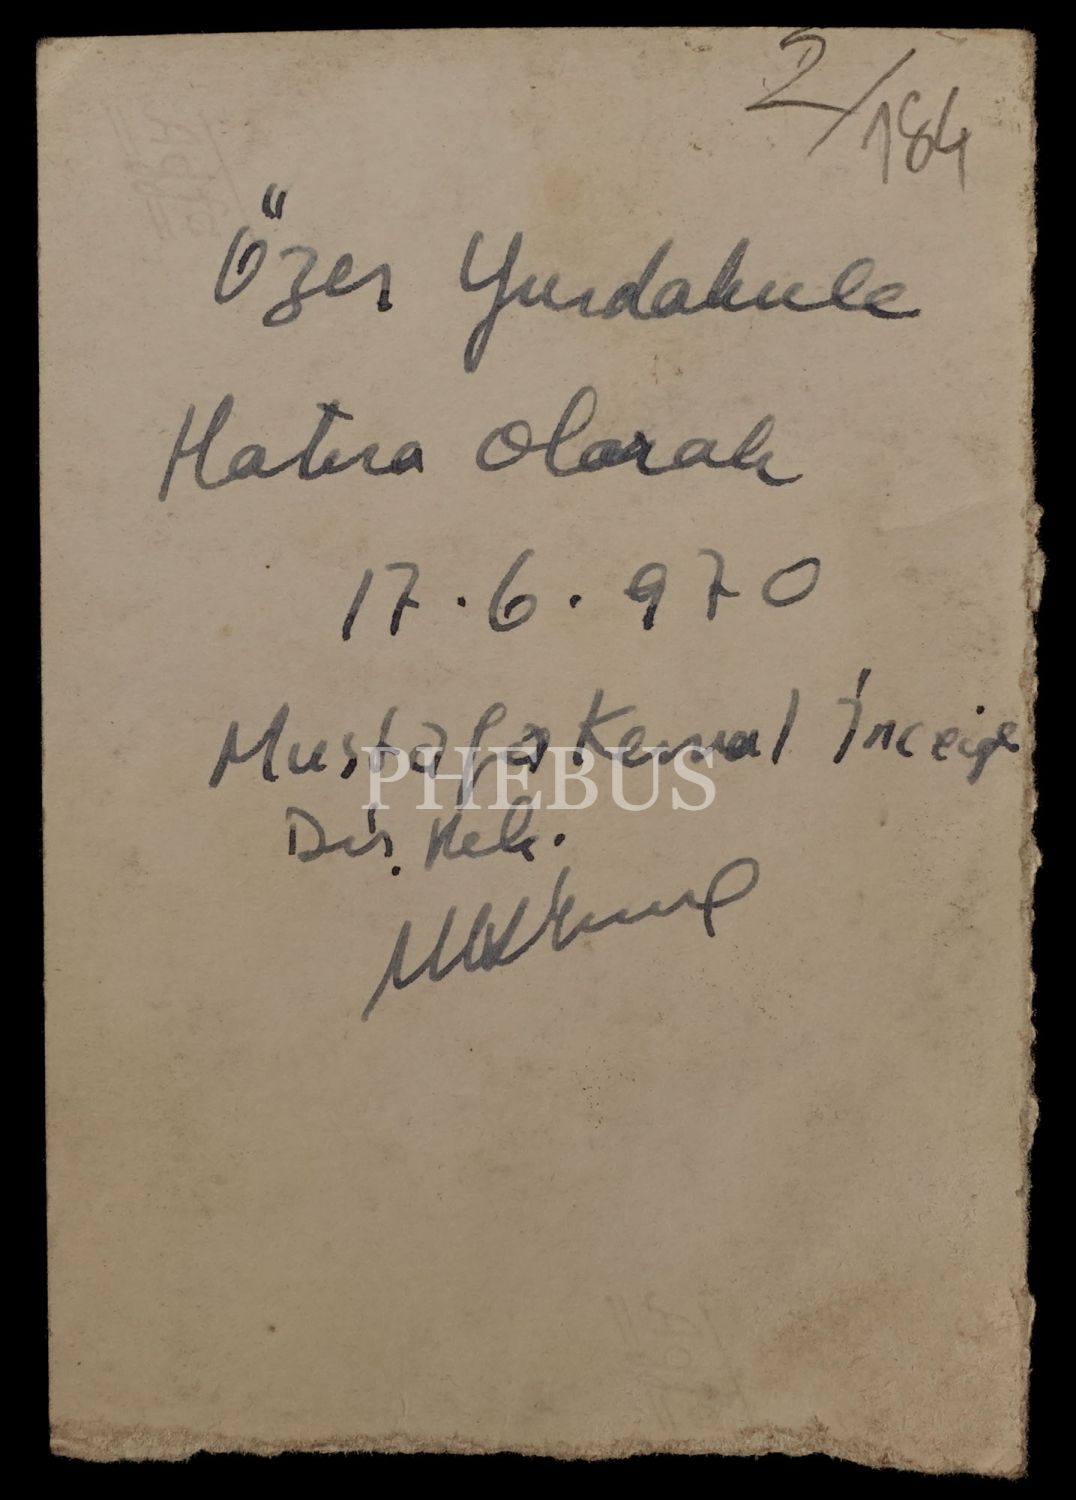 2/184
Özer Yurdakule
Hatıra olarak
17.6.970
Mustafa Kemal
PHEBUS